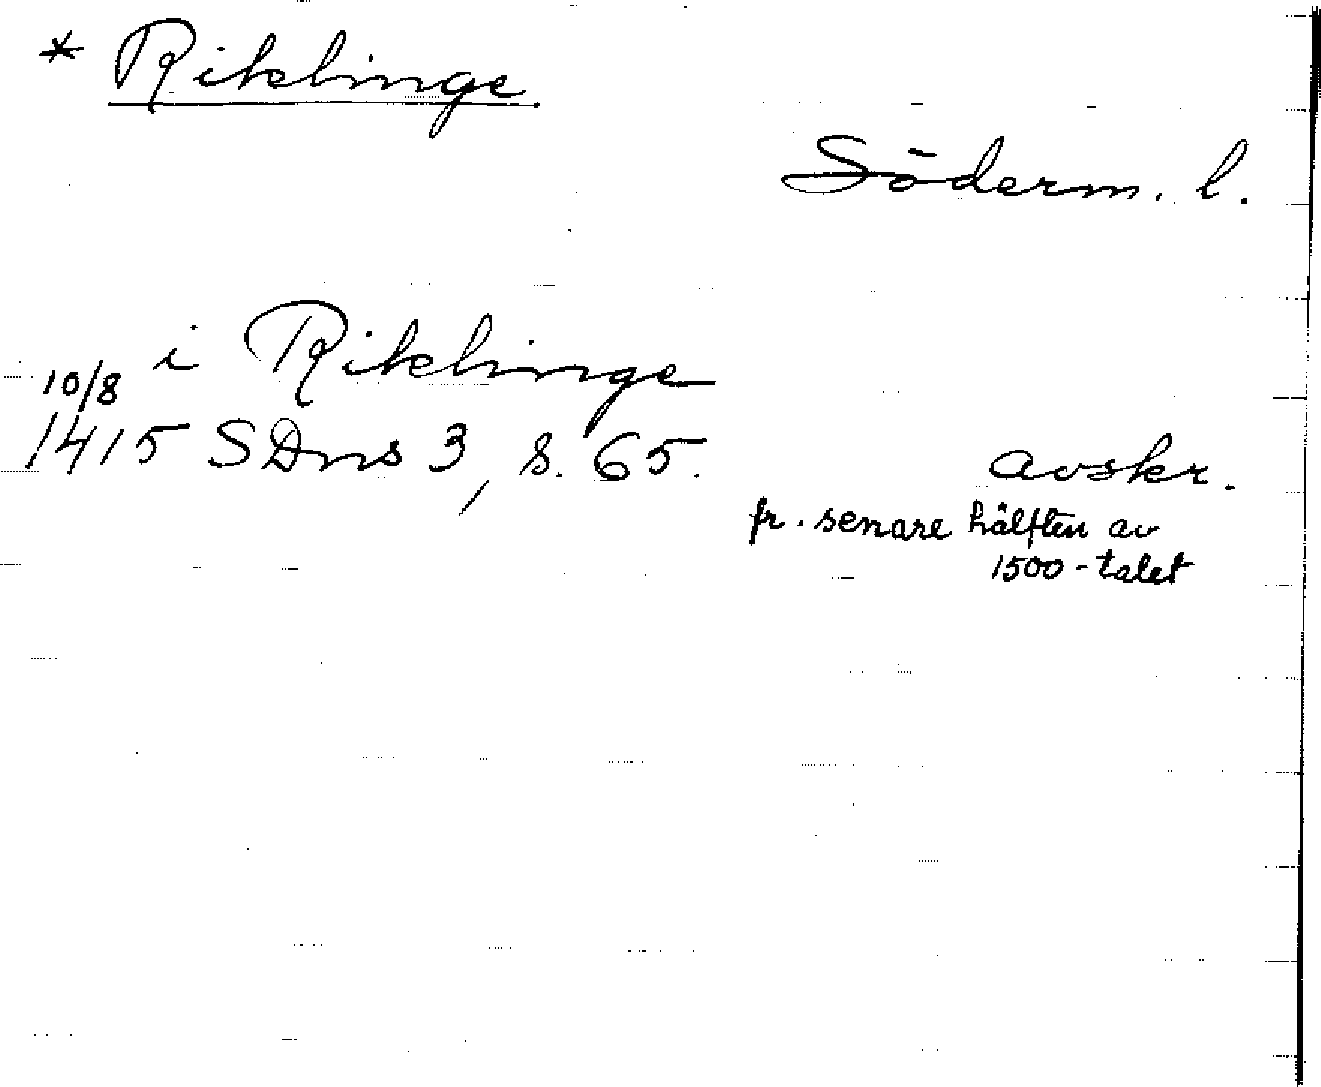 * Riklinge
Söderm. l.
i Riklinge
10/8
1415 SDns 3, s. 65. avskr.
fr. senare hälften av
1500-talet